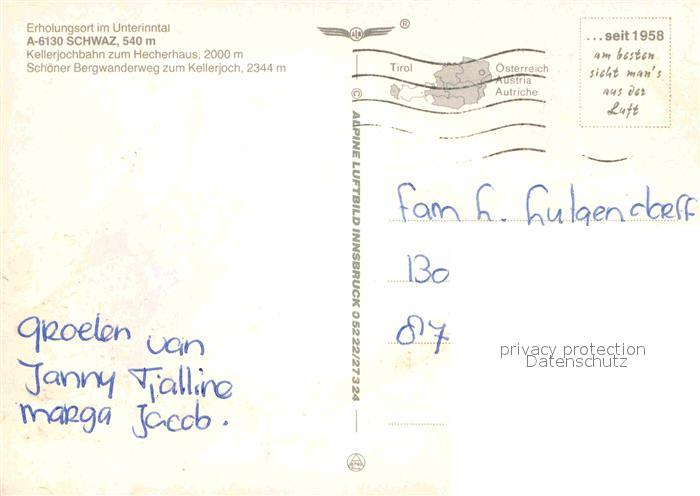 Erholungsort im Unterinntal
A-6130 SCHWAZ, 540 m
Kellerjochbahn zum Hecherhaus, 2000 m
Schöner Bergwanderweg zum Kellerjoch, 2344 m
®
...seit 1958
am besten
sieht man's
aus der
Luft
Tirol
Österreich
Austria
Autriche
© ALPINE LUFTBILD INNSBRUCK 0 52 22/27 3 24
Fam H.
Bo
87
privacy protection
Datenschutz
groeten van
Janny Tjalline
marga Jacob.